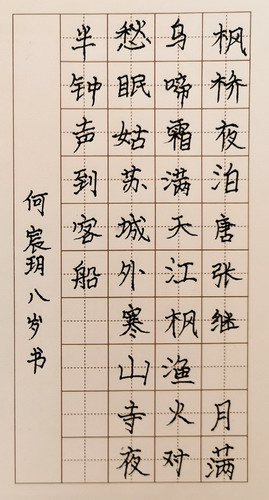 枫桥夜泊唐张继 月满
乌啼霜满天江枫渔火对
愁眠姑苏城外寒山寺夜
半钟声到客船
何宸玥八岁书